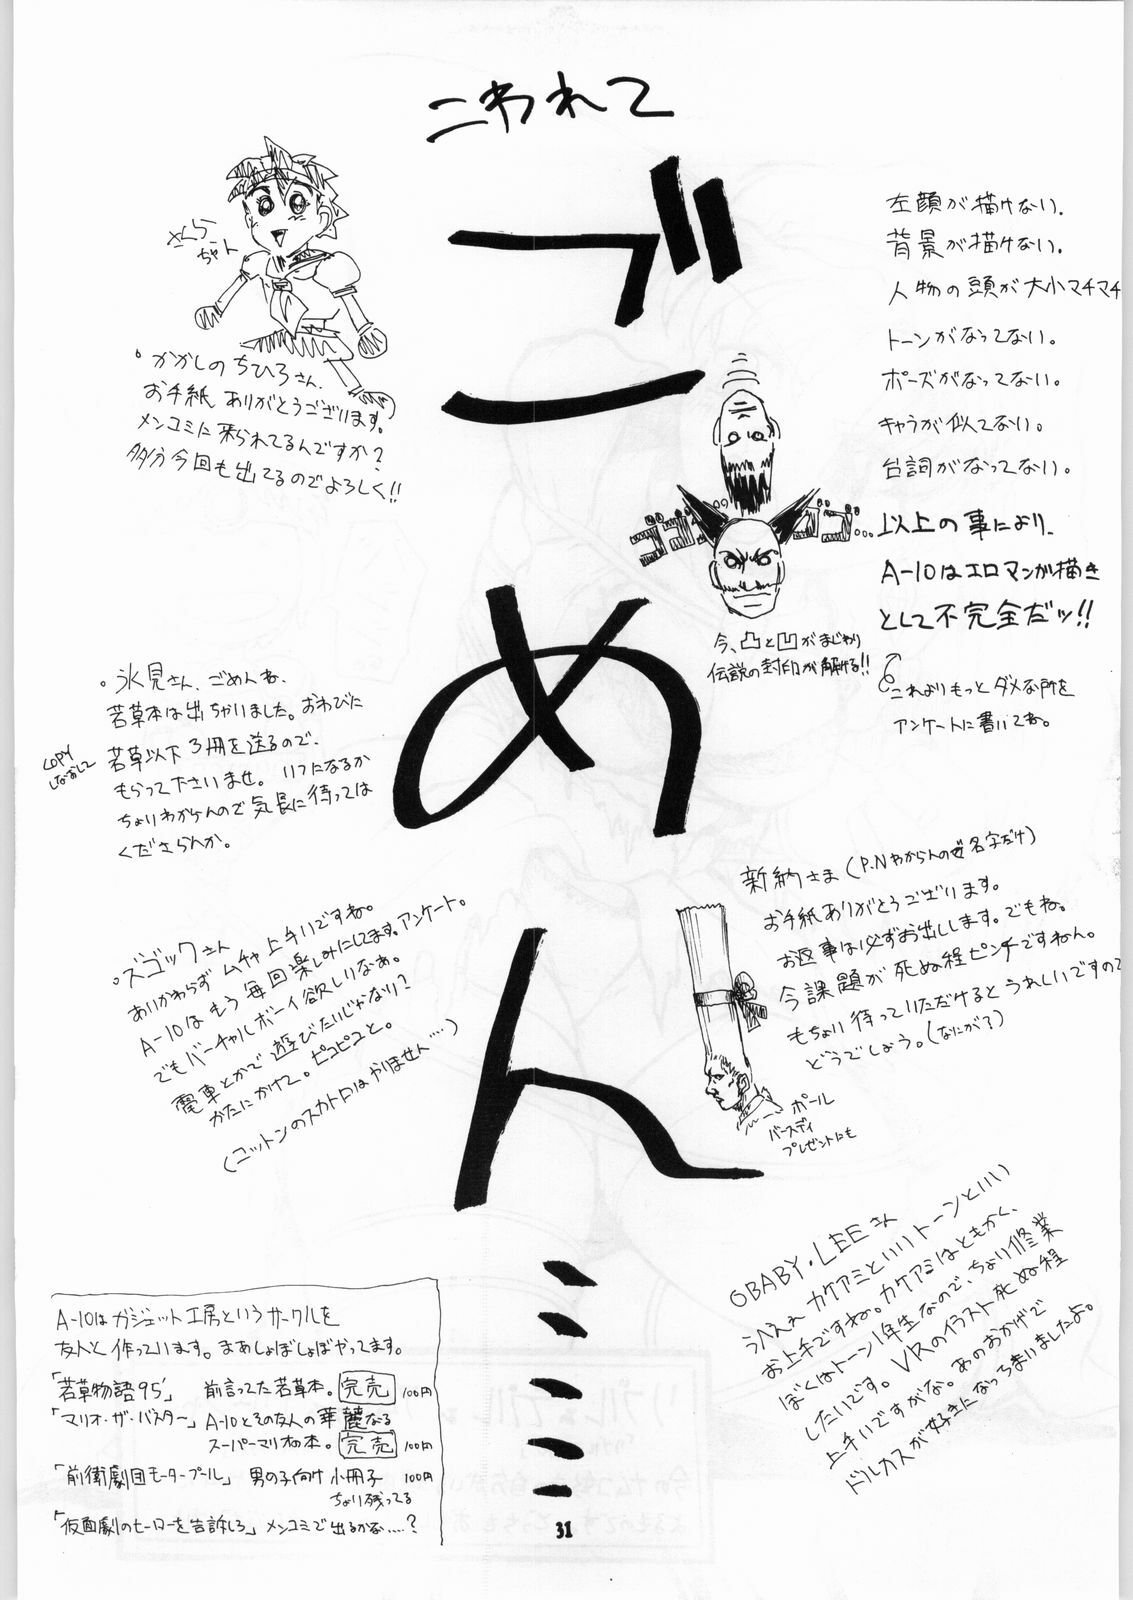 こわれて
ごめん……
さくらちゃん
。かかしのちひろさん、
お手紙ありがとうございます。
メンコミに来られてるんですか?
多分今回も出てるのでよろしく!!
左顔が描けない、
背景が描けない、
人物の頭が大小マチマチ
トーンがなってない。
ポーズがなってない。
キャラが似てない。
台詞がなってない。
以上の事により、
A-10はエロマンガ描き
として不完全だッ!!
これよりもっとダメな所を
アンケートに書いてね。
ゴゴ
ゴゴ…
今、凸と凹がまじわり
伝説の封印が解ける!!
。氷見さん、ごめんね、
若草本は出ちゃいました。おわびに
若草以下3冊を送るので、
もらって下さいませ。いつになるか
ちょいわからんので気長に待っては
くださらんか。
COPY
しなおして
。ズゴックさん
ありかわらずムチャ上手いですね。
A-10はもう毎回楽しみにしてます。アンケート。
でもバーチャルボーイ欲しいなぁ。
電車とかで遊びたいじゃない?
かたにかけて。ピコピコと。
(コットンのスカトロはやりません……)
新納さま(P.Nわからんので名字だけ)
お手紙ありがとうございます。
お返事は必ずお出しします。でもね。
今課題が死ぬ程ピンチですねん。
もちょい待っていただけるとうれしいですので
どうでしょう。(なにが?)
ポール
バースディ
プレゼントにも
OBABY・LEEさん
うひえぇカケアミといいトーンといい
お上手ですね。カケアミはともかく、
ぼくはトーン1年生なので、ちょい修業
したいです。VRのイラスト死ぬ程
上手いですがな。あのおかげで
ドルカスが好きになっちまいましたよ。
A-10はガジェット工房というサークルを
友人と作っています。まあしょぼしょぼやってます。
「若草物語95'」 前言ってた若草本。完売 100円
「マリオ・ザ・バスター」 A-10とその友人の華麗なる
スーパーマリオの本。完売 100円
「前衛劇団モータープール」 男の子向け小冊子 100円
ちょい残ってる
「仮面劇のヒーローを告訴しろ」メンコミで出るかな……?
31